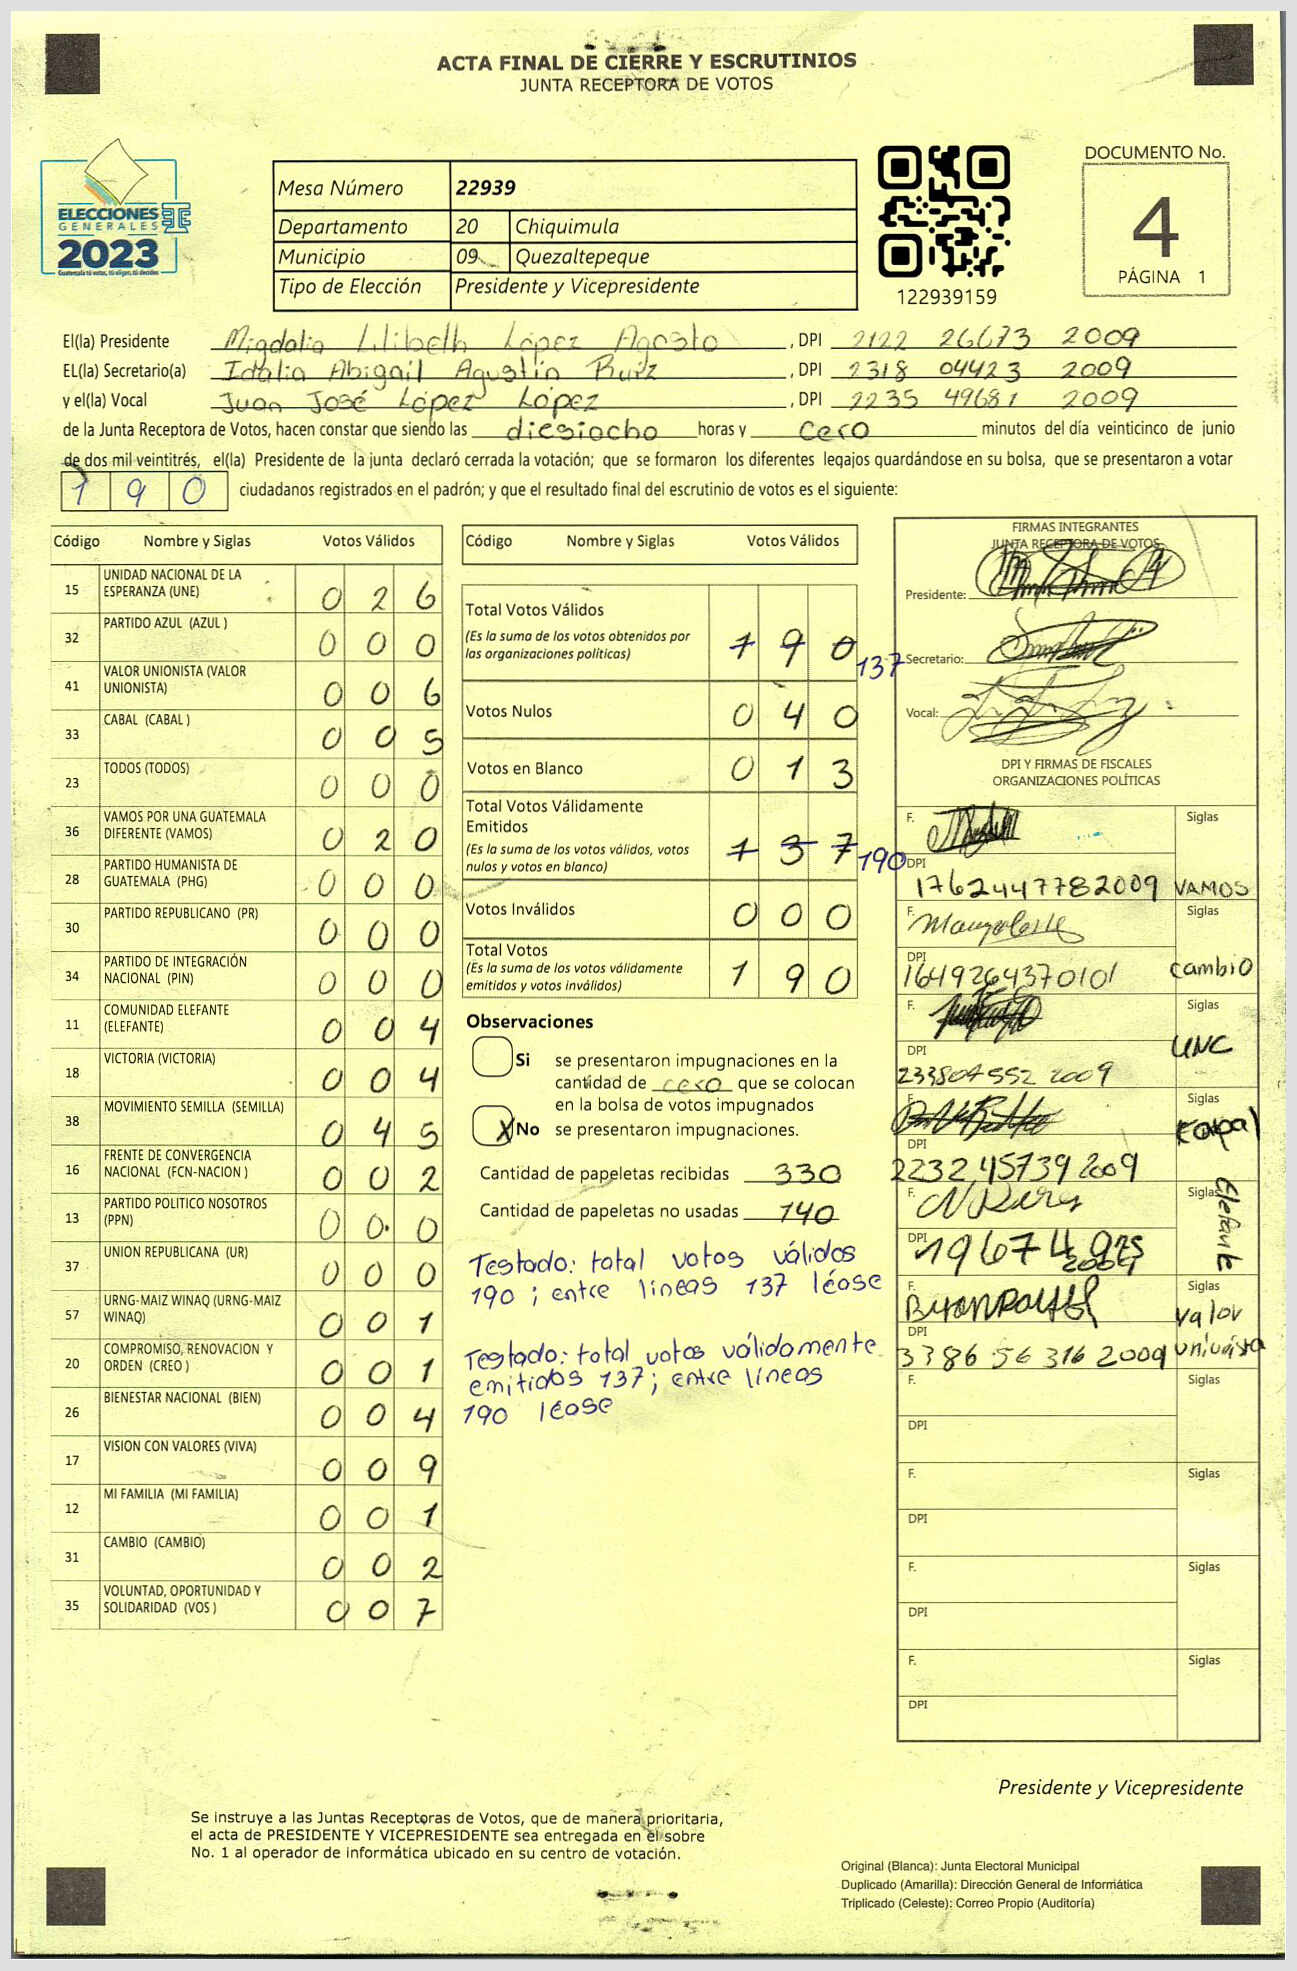 ACTA FINAL DE CIERRE Y ESCRUTINIOS
JUNTA RECEPTORA DE VOTOS
ELECCIONES
GENERALES
2023
Guatemala tú votas, tú eliges, tú decides
Mesa Número 22939
Departamento 20 Chiquimula
Municipio 09 Quezaltepeque
Tipo de Elección Presidente y Vicepresidente
122939159
DOCUMENTO No.
4
PÁGINA 1
El(la) Presidente Migdalia Lilibeth López Agosto , DPI 2122 26673 2009
EL(la) Secretario(a) Idalia Abigail Agustín Ruiz , DPI 2318 04423 2009
y el(la) Vocal Juan José López López , DPI 2235 49681 2009
de la Junta Receptora de Votos, hacen constar que siendo las diesiocho horas y cero minutos del día veinticinco de junio
de dos mil veintitrés, el(la) Presidente de la junta declaró cerrada la votación; que se formaron los diferentes legajos guardándose en su bolsa, que se presentaron a votar
190 ciudadanos registrados en el padrón; y que el resultado final del escrutinio de votos es el siguiente:
Código Nombre y Siglas Votos Válidos
15 UNIDAD NACIONAL DE LA ESPERANZA (UNE) 0 2 6
32 PARTIDO AZUL (AZUL ) 0 0 0
41 VALOR UNIONISTA (VALOR UNIONISTA) 0 0 6
33 CABAL (CABAL ) 0 0 5
23 TODOS (TODOS) 0 0 0
36 VAMOS POR UNA GUATEMALA DIFERENTE (VAMOS) 0 2 0
28 PARTIDO HUMANISTA DE GUATEMALA (PHG) 0 0 0
30 PARTIDO REPUBLICANO (PR) 0 0 0
34 PARTIDO DE INTEGRACIÓN NACIONAL (PIN) 0 0 0
11 COMUNIDAD ELEFANTE (ELEFANTE) 0 0 4
18 VICTORIA (VICTORIA) 0 0 4
38 MOVIMIENTO SEMILLA (SEMILLA) 0 4 5
16 FRENTE DE CONVERGENCIA NACIONAL (FCN-NACION ) 0 0 2
13 PARTIDO POLITICO NOSOTROS (PPN) 0 0 0
37 UNION REPUBLICANA (UR) 0 0 0
57 URNG-MAIZ WINAQ (URNG-MAIZ WINAQ) 0 0 1
20 COMPROMISO, RENOVACION Y ORDEN (CREO ) 0 0 1
26 BIENESTAR NACIONAL (BIEN) 0 0 4
17 VISION CON VALORES (VIVA) 0 0 9
12 MI FAMILIA (MI FAMILIA) 0 0 1
31 CAMBIO (CAMBIO) 0 0 2
35 VOLUNTAD, OPORTUNIDAD Y SOLIDARIDAD (VOS ) 0 0 7
Código Nombre y Siglas Votos Válidos
Total Votos Válidos
(Es la suma de los votos obtenidos por
las organizaciones políticas) 1 9 0 137
Votos Nulos 0 4 0
Votos en Blanco 0 1 3
Total Votos Válidamente
Emitidos
(Es la suma de los votos válidos, votos
nulos y votos en blanco) 1 3 7 190
Votos Inválidos 0 0 0
Total Votos
(Es la suma de los votos válidamente
emitidos y votos inválidos) 1 9 0
Observaciones
Si se presentaron impugnaciones en la
cantidad de cero que se colocan
en la bolsa de votos impugnados
X No se presentaron impugnaciones.
Cantidad de papeletas recibidas 330
Cantidad de papeletas no usadas 140
Testado: total votos válidos
190 ; entre líneas 137 léase
Testado: total votos válidamente
emitidos 137; entre líneas
190 léase
FIRMAS INTEGRANTES
JUNTA RECEPTORA DE VOTOS
Presidente:
Secretario:
Vocal:
DPI Y FIRMAS DE FISCALES
ORGANIZACIONES POLÍTICAS
F. Siglas
DPI
1762447782009 VAMOS
F. Siglas
DPI
1649264370101 cambio
F. Siglas
DPI UNC
233804552 2009
F. Siglas
DPI
2232 45739 2009
F. Siglas Elefante
DPI
19674 2009
F. Siglas
valor
DPI
3386 56 316 2009 unionista
F. Siglas
DPI
F. Siglas
DPI
F. Siglas
DPI
F. Siglas
DPI
Presidente y Vicepresidente
Se instruye a las Juntas Receptoras de Votos, que de manera prioritaria,
el acta de PRESIDENTE Y VICEPRESIDENTE sea entregada en el sobre
No. 1 al operador de informática ubicado en su centro de votación.
Original (Blanca): Junta Electoral Municipal
Duplicado (Amarilla): Dirección General de Informática
Triplicado (Celeste): Correo Propio (Auditoría)